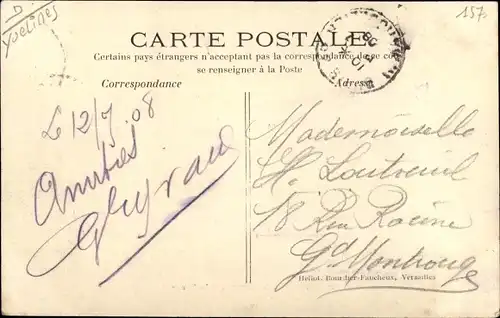 D
Yvelines
157
CARTE POSTALE
Certains pays étrangers n'acceptent pas la correspondance de ce co
se renseigner à la Poste
Correspondance
Adresse
Le 12/7 08
Amitiés
Mademoiselle
H. Loutreuil
18 Rue Racine
Gd Montrouge
Héliot. Bourdier-Faucheux, Versailles